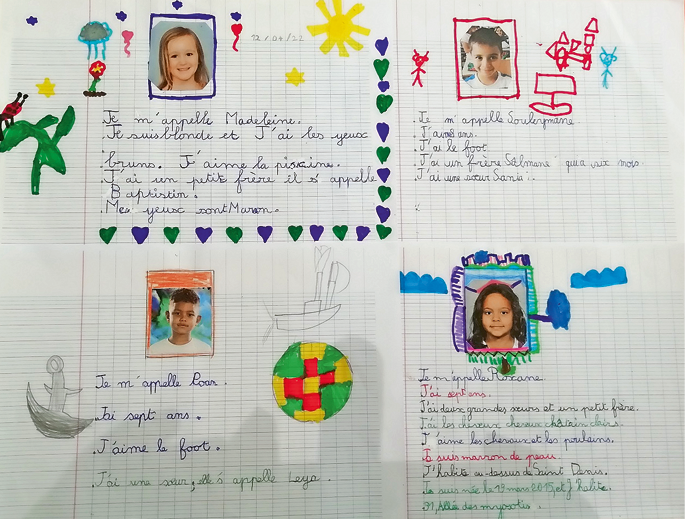 12/04/22
Je m'appelle Madeleine.
Je suis blonde et J'ai les yeux
bruns. J'aime la piscine.
J'ai un petit frère il s'appelle
Baptistin.
Mes yeux sont Marron.
Je m'appelle Souleymane.
J'ai ans.
J'ai le foot
J'ai un frère Salmane qui a six mois
J'ai une sœur Sania.
Je m'appelle Loan.
J'ai sept ans.
J'aime le foot.
J'ai une sœur, elle s'appelle Leya.
Je m'appelle Roxane.
J'ai sept ans.
J'ai deux grandes sœurs et un petit frère.
J'ai les cheveux, cheveux châtain clairs.
J'aime les chevaux et les poulains.
Je suis marron de peau.
J'habite au-dessus de Saint Denis.
Je suis née le mars 2015, et J'habite.
Allée des myosotis.